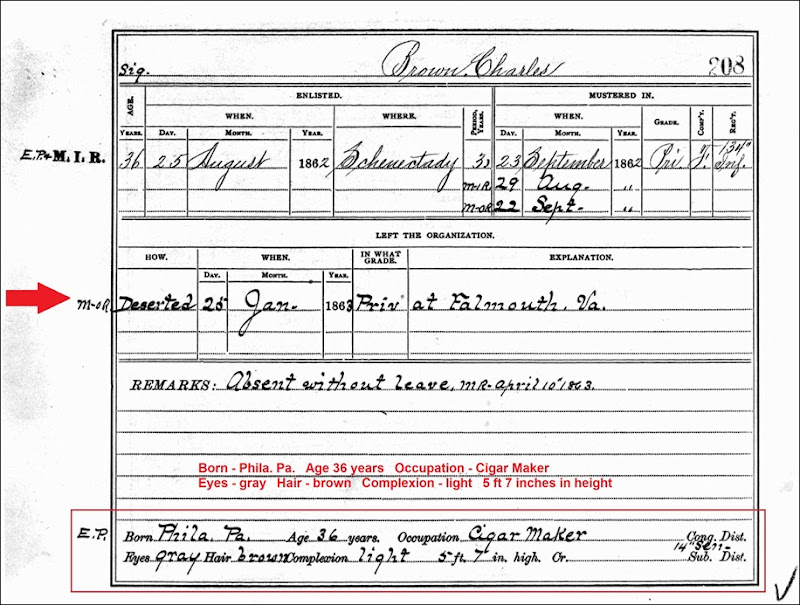 Sig. Brown, Charles 208
AGE. ENLISTED. MUSTERED IN.
YEARS. WHEN. WHERE. PERIOD, YEARS. WHEN. GRADE. COMP'Y. REG'T.
DAY. MONTH. YEAR. DAY. MONTH. YEAR.
E.P.+ M. I. R. 36 25 August 1862 Schenectady 3 23 September 1862 Pri F. 134" Inf.
M-I-R 29 Aug. "
M-O-R 22 Sept. "
LEFT THE ORGANIZATION.
HOW. WHEN. IN WHAT GRADE. EXPLANATION.
DAY. MONTH. YEAR.
M-O-R. Deserted 25 Jan- 1863 Priv at Falmouth, Va.
REMARKS: Absent without leave, MR-April 10" 1863.
Born - Phila. Pa. Age 36 years Occupation - Cigar Maker
Eyes - gray Hair - brown Complexion - light 5 ft 7 inches in height
E.P. Born Phila. Pa. Age 36 years. Occupation Cigar Maker Cong. Dist.
14" Sen-
Eyes gray Hair brown Complexion light 5 ft. 7 in. high. Cr. Sub. Dist.